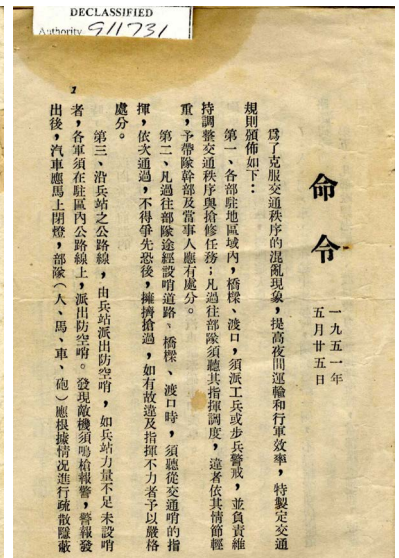 DECLASSIFIED
Authority 911731
命令
一九五一年
五月廿五日
爲了克服交通秩序的混亂現象，提高夜間運輸和行軍效率，特製定交通
規則頒佈如下：
第一、各部駐地區域內，橋樑、渡口，須派工兵或步兵警戒，並負責維
持調整交通秩序與搶修任務；凡過往部隊須聽其指揮調度，違者依其情節輕
重，予帶隊幹部及當事人應有處分。
第二、凡過往部隊途經設哨道路、橋樑、渡口時，須聽從交通哨的指
揮，依次通過，不得爭先恐後，擁擠搶過，如有故違及指揮不力者予以嚴格
處分。
第三、沿兵站之公路線，由兵站派出防空哨，如兵站力量不足未設哨
者，各軍須在駐區內公路線上，派出防空哨。發現敵機須鳴槍報警，警報發
出後，汽車應馬上閉燈，部隊（人、馬、車、砲）應根據情况進行疏散隱蔽
1